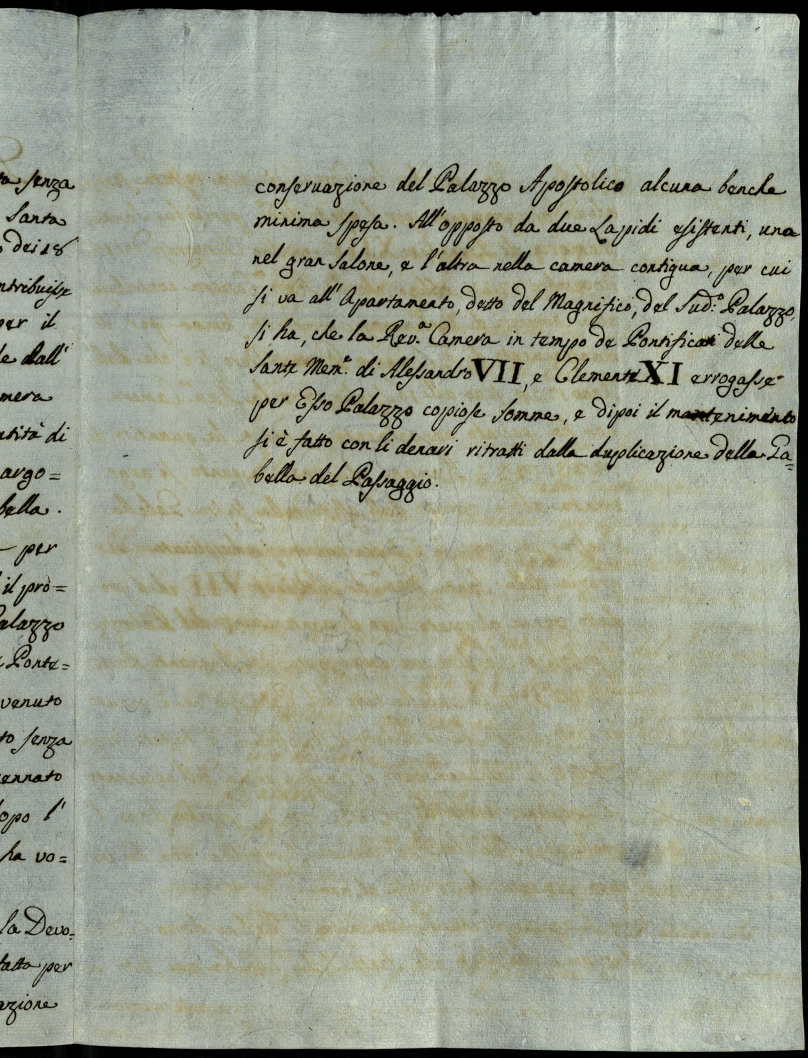 ta senza
Santa
o dei 18
ntribuisse
per il
le dall'
mera
ntità di
argo=
bella.
per
il prò=
alazzo
Ponte=
venuto
to senza
cennato
opo l'
ha vo=
la Devo=
fatta per
azione
conservazione del Palazzo Apostolico alcuna benche
minima spesa. All'opposto da due Lapidi esistenti, una
nel gran Salone, e l'altra nella camera contigua, per cui
si va all'Apartamento, detto del Magnifico, del Sud.º Palazzo,
si ha, che la Rev.ª Camera in tempo de Pontificati delle
Sante Mem.e di Alessandro VII, e Clemente XI erogasse
per Esso Palazzo copiose somme, e dipoi il mantenimento
si è fatto con li denari ritratti dalla duplicazione della Ga=
bella del Passaggio.